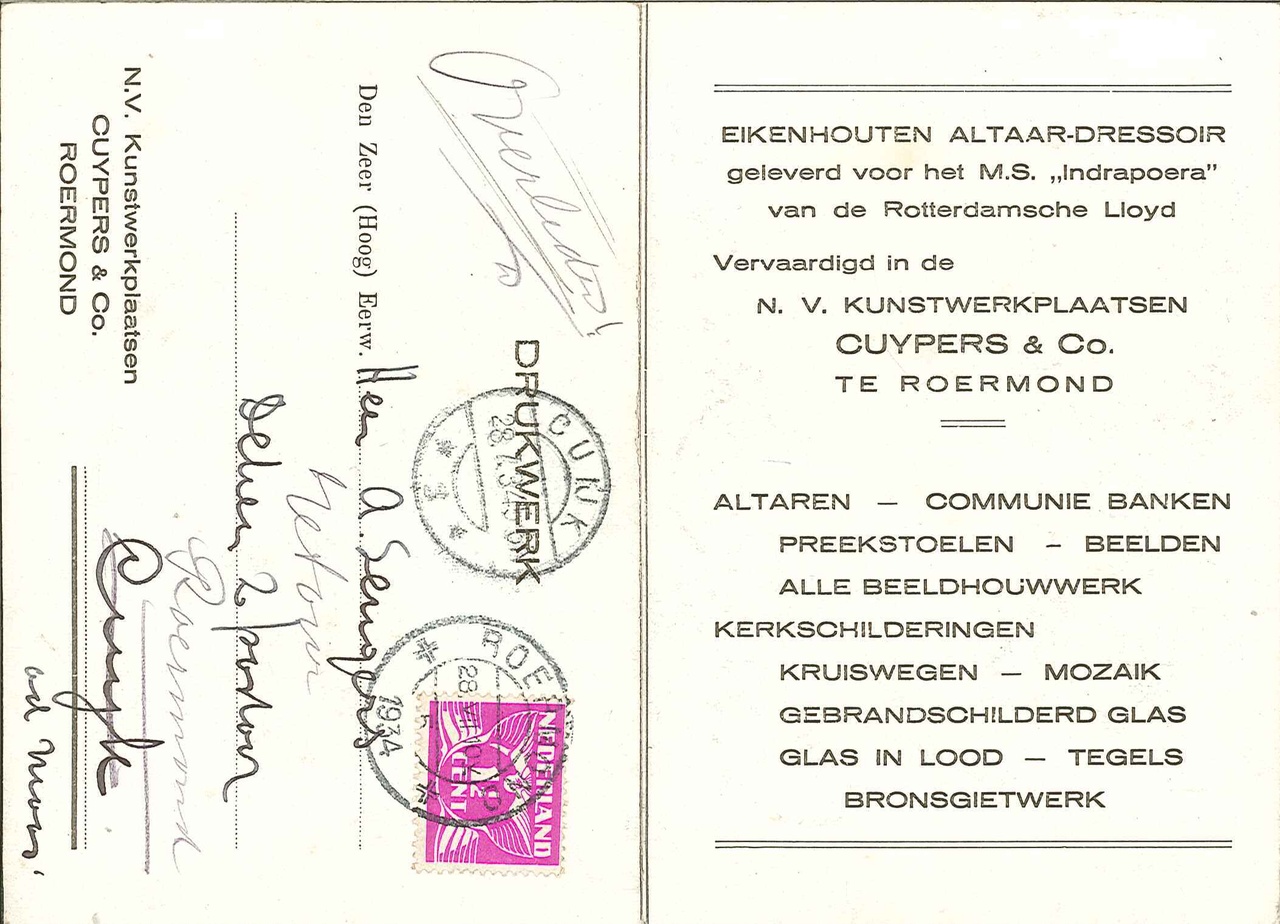 N.V. Kunstwerkplaatsen
CUYPERS & Co.
ROERMOND
Overleden!
DRUKWERK
CUIJK
ROE
28 VII
1934
NEDERLAND
1½
CENT
Den Zeer (Hoog) Eerw. Heer A. Sengers
Retour
Deken Pastoor
Roermond
Cuijk
ad Maas
EIKENHOUTEN ALTAAR-DRESSOIR
geleverd voor het M.S. „Indrapoera”
van de Rotterdamsche Lloyd
Vervaardigd in de
N. V. KUNSTWERKPLAATSEN
CUYPERS & Co.
TE ROERMOND
ALTAREN — COMMUNIE BANKEN
PREEKSTOELEN — BEELDEN
ALLE BEELDHOUWWERK
KERKSCHILDERINGEN
KRUISWEGEN — MOZAIK
GEBRANDSCHILDERD GLAS
GLAS IN LOOD — TEGELS
BRONSGIETWERK